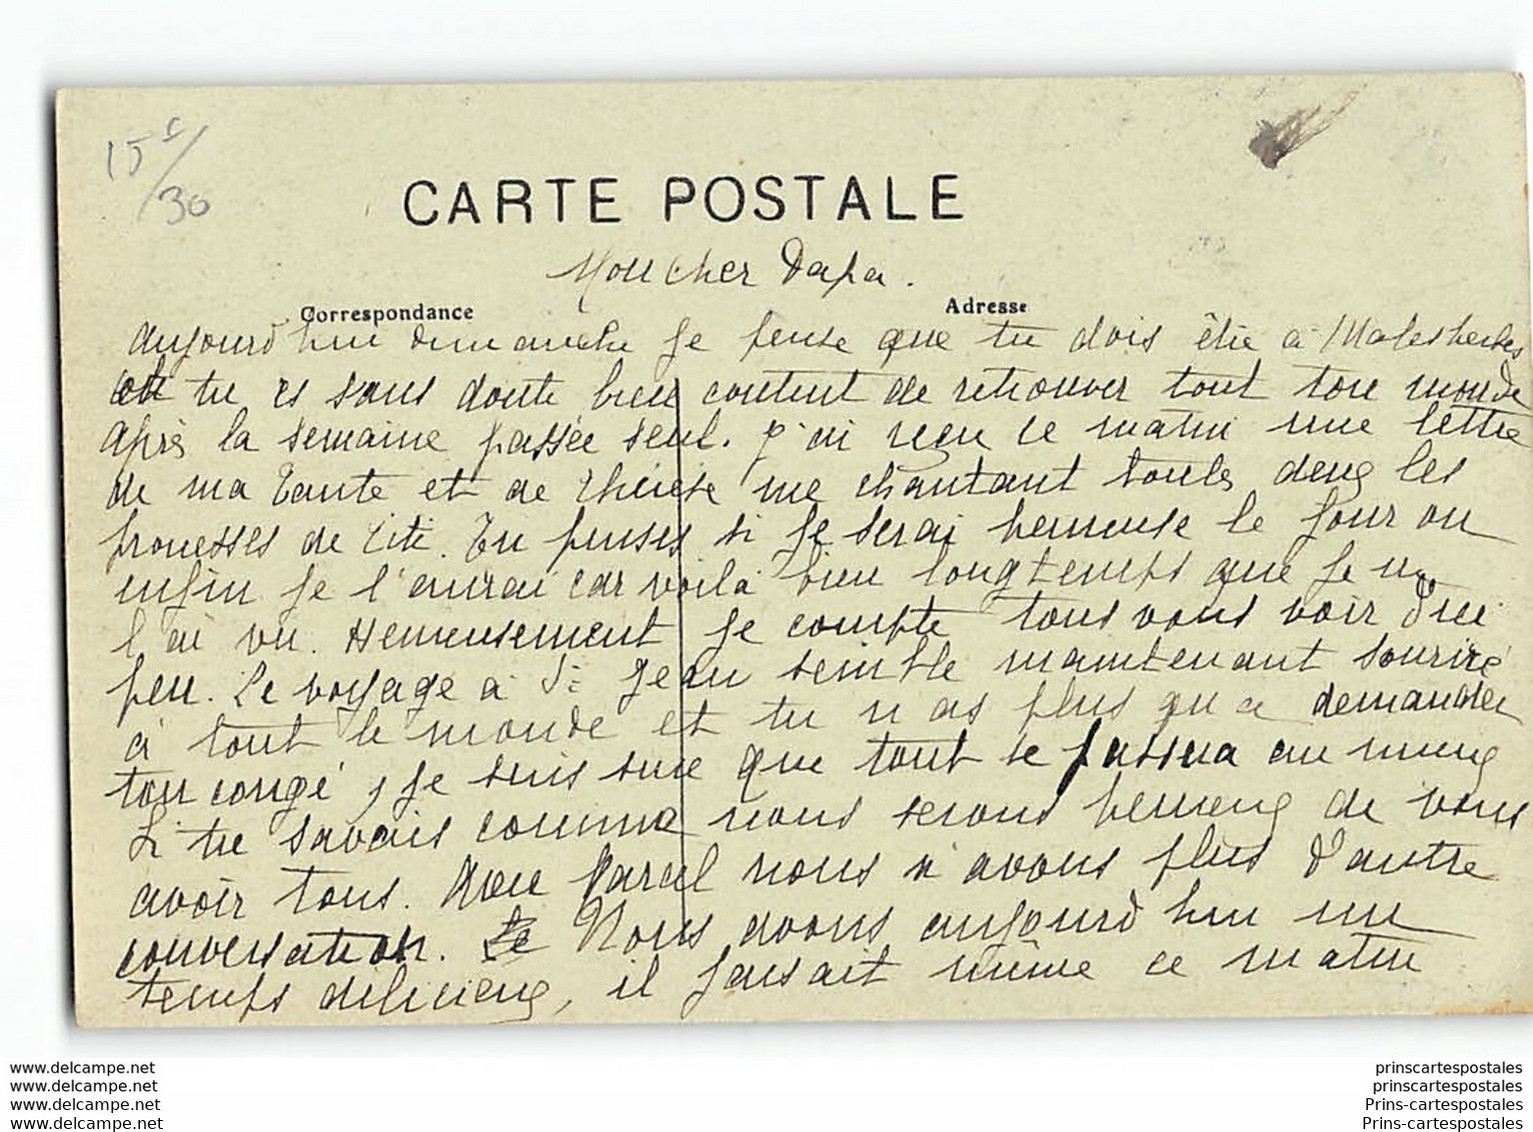 15 F/30
CARTE POSTALE
Mon cher Papa.
Correspondance Adresse
Aujourd'hui dimanche je pense que tu dois être à Malesherbes
où tu es sans doute bien content de retrouver tout ton monde
après la semaine passée seul. J'ai reçu ce matin une lettre
de ma Tante et de Thérèse me chantant toutes deux les
prouesses de Titi. Tu penses si je serai heureuse le jour où
enfin je l'aurai car voilà bien longtemps que je ne
l'ai vu. Heureusement je compte tous vous voir d'ici
peu. Le voyage à St Jean semble maintenant sourire
à tout le monde et tu n'as plus qu'a demander
ton congé, je suis sure que tout se passera au mieux
Si tu savais comme nous serons heureux de vous
avoir tous. Avec Marcel nous n'avons plus d'autre
conversation. Nous avons aujourd'hui un
temps délicieux, il faisait même ce matin
www.delcampe.net prinscartespostales
www.delcampe.net prinscartespostales
www.delcampe.net Prins-cartespostales
www.delcampe.net Prins-cartespostales